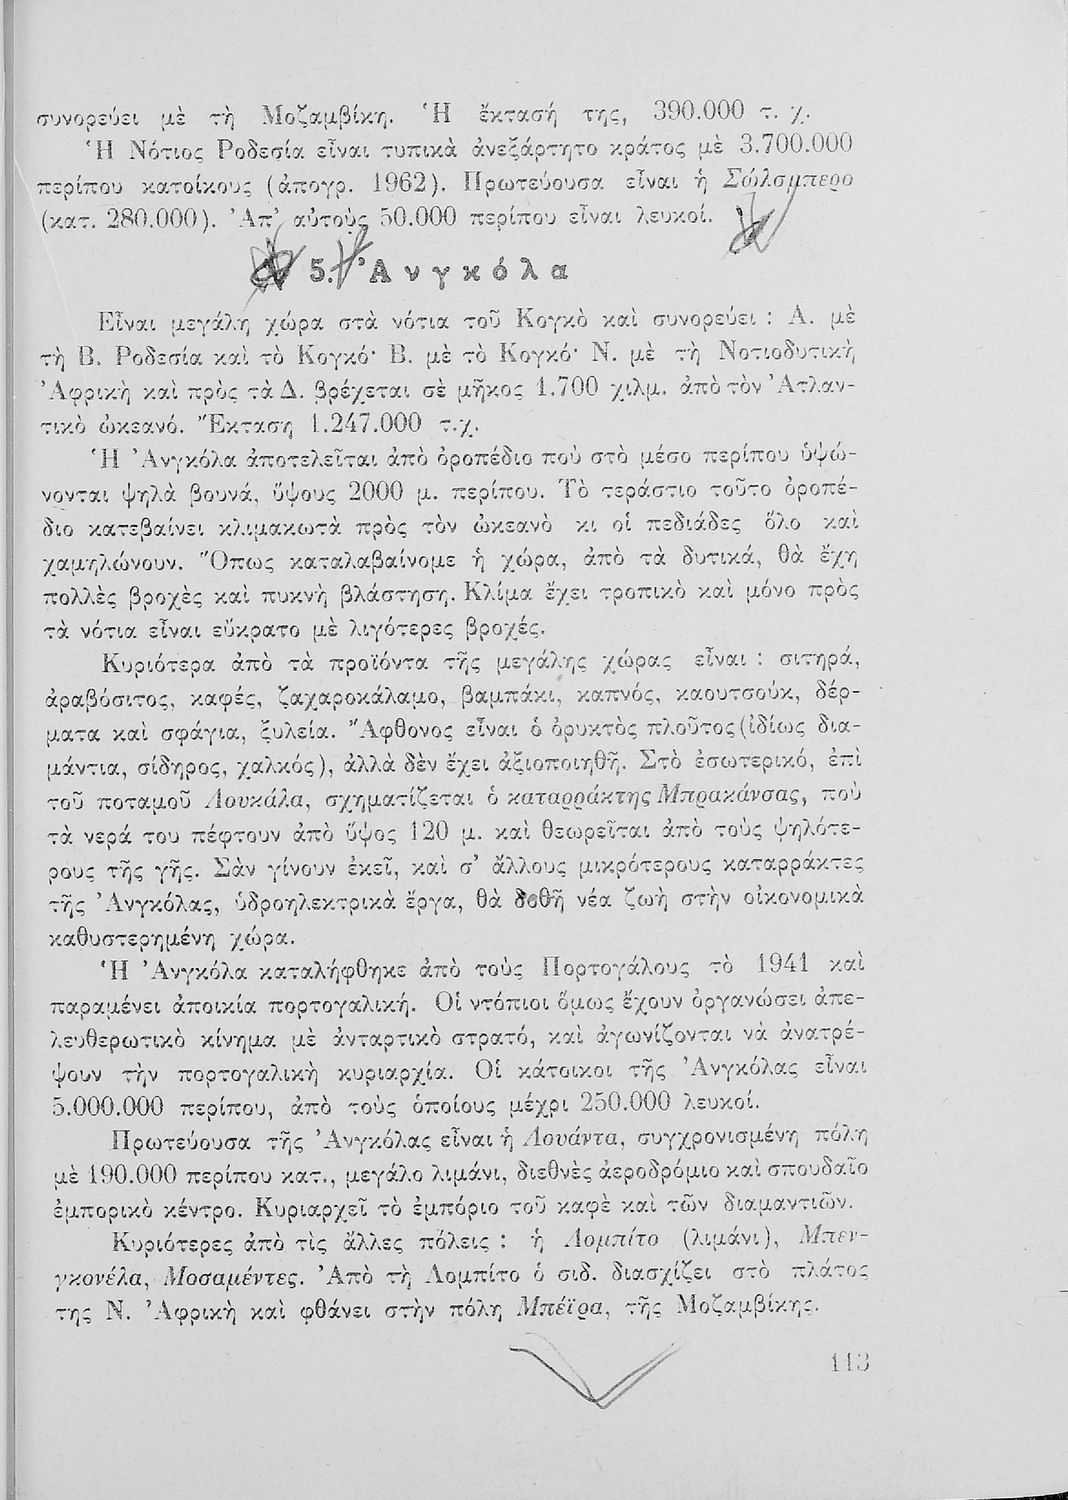 συνορεύει μὲ τὴ Μοζαμβίκη. Ἡ ἔκτασή της, 390.000 τ. χ.
Ἡ Νότιος Ροδεσία εἶναι τυπικὰ ἀνεξάρτητο κράτος μὲ 3.700.000
περίπου κατοίκους (ἀπογρ. 1962). Πρωτεύουσα εἶναι ἡ Σώλσμπερο
(κατ. 280.000). Ἀπ’ αὐτοὺς 50.000 περίπου εἶναι λευκοί.
5. Ἀνγκόλα
Εἶναι μεγάλη χώρα στὰ νότια τοῦ Κογκὸ καὶ συνορεύει : Α. μὲ
τὴ Β. Ροδεσία καὶ τὸ Κογκό· Β. μὲ τὸ Κογκό· Ν. μὲ τὴ Νοτιοδυτικὴ
Ἀφρικὴ καὶ πρὸς τὰ Δ. βρέχεται σὲ μῆκος 1.700 χιλμ. ἀπὸ τὸν Ἀτλαν-
τικὸ ὠκεανό. Ἔκταση 1.247.000 τ.χ.
Ἡ Ἀνγκόλα ἀποτελεῖται ἀπὸ ὀροπέδιο ποὺ στὸ μέσο περίπου ὑψώ-
νονται ψηλὰ βουνά, ὕψους 2000 μ. περίπου. Τὸ τεράστιο τοῦτο ὀροπέ-
διο κατεβαίνει κλιμακωτὰ πρὸς τὸν ὠκεανὸ κι οἱ πεδιάδες ὅλο καὶ
χαμηλώνουν. Ὅπως καταλαβαίνομε ἡ χώρα, ἀπὸ τὰ δυτικά, θὰ ἔχη
πολλὲς βροχὲς καὶ πυκνὴ βλάστηση. Κλίμα ἔχει τροπικὸ καὶ μόνο πρὸς
τὰ νότια εἶναι εὔκρατο μὲ λιγότερες βροχές.
Κυριότερα ἀπὸ τὰ προϊόντα τῆς μεγάλης χώρας εἶναι : σιτηρά,
ἀραβόσιτος, καφές, ζαχαροκάλαμο, βαμπάκι, καπνός, καουτσούκ, δέρ-
ματα καὶ σφάγια, ξυλεία. Ἄφθονος εἶναι ὁ ὀρυκτὸς πλοῦτος (ἰδίως δια-
μάντια, σίδηρος, χαλκός), ἀλλὰ δὲν ἔχει ἀξιοποιηθῆ. Στὸ ἐσωτερικό, ἐπὶ
τοῦ ποταμοῦ Λουκάλα, σχηματίζεται ὁ καταρράκτης Μπρακάνσας, ποὺ
τὰ νερά του πέφτουν ἀπὸ ὕψος 120 μ. καὶ θεωρεῖται ἀπὸ τοὺς ψηλότε-
ρους τῆς γῆς. Σὰν γίνουν ἐκεῖ, καὶ σ’ ἄλλους μικρότερους καταρράκτες
τῆς Ἀνγκόλας, ὑδροηλεκτρικὰ ἔργα, θὰ δοθῆ νέα ζωὴ στὴν οἰκονομικὰ
καθυστερημένη χώρα.
Ἡ Ἀνγκόλα καταλήφθηκε ἀπὸ τοὺς Πορτογάλους τὸ 1941 καὶ
παραμένει ἀποικία πορτογαλική. Οἱ ντόπιοι ὅμως ἔχουν ὀργανώσει ἀπε-
λευθερωτικὸ κίνημα μὲ ἀνταρτικὸ στρατό, καὶ ἀγωνίζονται νὰ ἀνατρέ-
ψουν τὴν πορτογαλικὴ κυριαρχία. Οἱ κάτοικοι τῆς Ἀνγκόλας εἶναι
5.000.000 περίπου, ἀπὸ τοὺς ὁποίους μέχρι 250.000 λευκοί.
Πρωτεύουσα τῆς Ἀνγκόλας εἶναι ἡ Λουάντα, συγχρονισμένη πόλη
μὲ 190.000 περίπου κατ., μεγάλο λιμάνι, διεθνὲς ἀεροδρόμιο καὶ σπουδαῖο
ἐμπορικὸ κέντρο. Κυριαρχεῖ τὸ ἐμπόριο τοῦ καφὲ καὶ τῶν διαμαντιῶν.
Κυριότερες ἀπὸ τὶς ἄλλες πόλεις : ἡ Λομπίτο (λιμάνι), Μπεν-
γκονέλα, Μοσαμέντες. Ἀπὸ τὴ Λομπίτο ὁ σιδ. διασχίζει στὸ πλάτος
της Ν. Ἀφρικὴ καὶ φθάνει στὴν πόλη Μπέϊρα, τῆς Μοζαμβίκης.
113